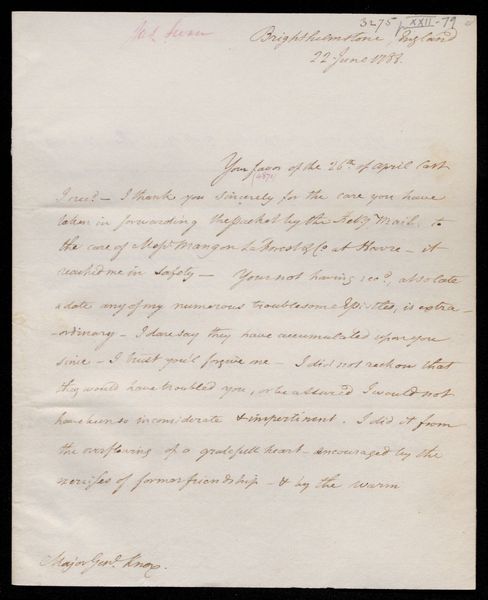 3275 XXII-79
Brighthelmstone, England
22 June 1788.
Your favor of the 26th of April last
I recd — I thank you sincerely for the care you have
taken in forwarding the packet by the Mail, to
the care of Messrs Mangon La Forest & Co at Havre — it
reached me in safety — Your not having recd, at so late
a date any of my numerous troublesome Epistles, is extra-
-ordinary — I dare say they have accumulated upon you
since — I trust you'l forgive me — I did not reckon that
they would have troubled you, or be assur'd I would not
have been so inconsiderate & impertinent. I did it from
the overflowing of a gratefull heart — encouraged by the
of former friendship — & by the warm
Major Genl. Knox.